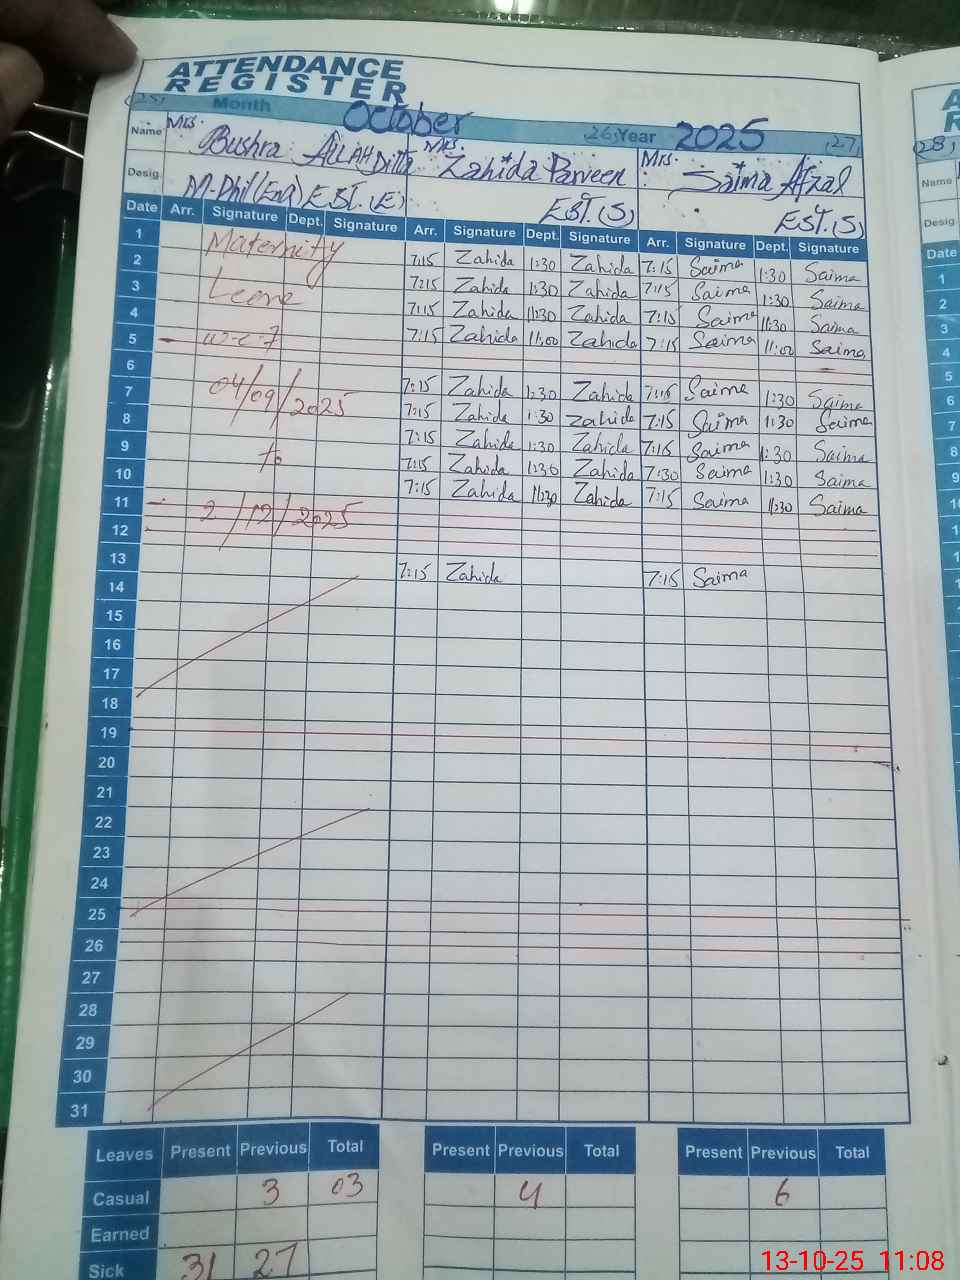 ATTENDANCE
REGISTER
(25) Month October 26 Year 2025 (27)
Name Mrs. Bushra ALLAH Ditta Mrs. Zahida Parveen Mrs. Saima Afzal
Desig. M-Phil(Eng) EST.(E) EST.(S) EST.(S)
Date Arr. Signature Dept. Signature Arr. Signature Dept. Signature Arr. Signature Dept. Signature
1 Maternity 7:15 Zahida 1:30 Zahida 7:15 Saima 1:30 Saima
2 7:15 Zahida 1:30 Zahida 7:15 Saima 1:30 Saima
3 Leave 7:15 Zahida 11:30 Zahida 7:15 Saima 11:30 Saima
4 7:15 Zahida 11:00 Zahida 7:15 Saima 11:00 Saima
5 w-e-f
6 7:15 Zahida 1:30 Zahida 7:15 Saima 1:30 Saima
7 04/09/2025 7:15 Zahida 1:30 Zahida 7:15 Saima 1:30 Saima
8 7:15 Zahida 1:30 Zahida 7:15 Saima 1:30 Saima
9 to 7:15 Zahida 1:30 Zahida 7:30 Saima 1:30 Saima
10 7:15 Zahida 11:30 Zahida 7:15 Saima 11:30 Saima
11 2/12/2025
12
13 7:15 Zahida 7:15 Saima
14
15
16
17
18
19
20
21
22
23
24
25
26
27
28
29
30
31
Leaves Present Previous Total Present Previous Total Present Previous Total
Casual 3 03 4 6
Earned
Sick 31 27
(28)
Name
Desig
Date
1
2
3
4
5
6
7
8
9
10
11
12
13-10-25 11:08